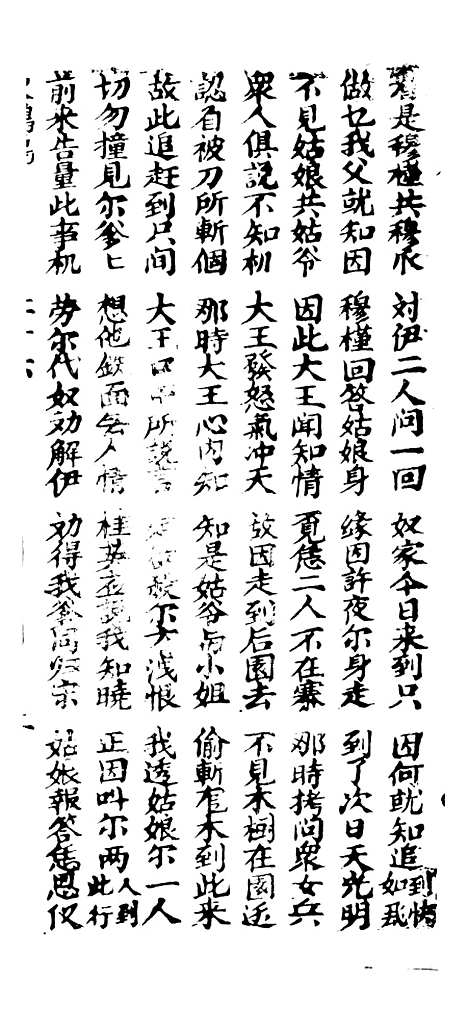 是穆槿共穆 对伊二人问一回 奴家今日来到只 因何就知追到
做乜我父就知因 穆槿回答姑娘身 缘因許夜尔身走 到了次日天光明
不見姑娘共姑爷 因此大王闻知情 覓恁二人不在寨 那時拷问衆女兵
衆人俱説不知机 大王發怒氣冲天 致因走到后园去 不見木樹在園
認有被刀所斬個 那時大王心内知 知是姑爷与小姐 偷斬宅木到此来
故此追赶到只间 大王口中所説言 尔女浅恨 我透姑娘尔一人
切勿撞見尔爹匕 想他鉄面無人情 桂英説我知曉 正因叫尔两人到此行
前来告量此事机 劳尔代奴劝解伊 劝得我爹同归宗 姑娘報答恁恩仪
二十六